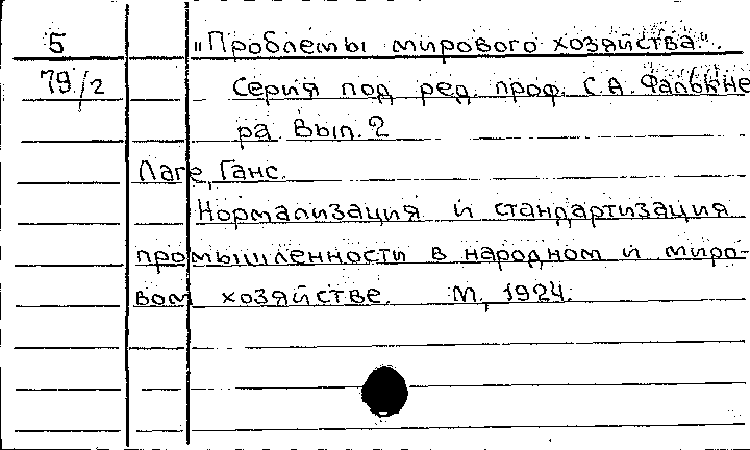 5 "Проблемы мирового хозяйства".
79/2 Серия под ред. проф. С.А. Фалькне
ра. Вып. 2
Лаге, Ганс.
Нормализация и стандартизация
промышленности в народном и миро-
вом хозяйстве. М., 1924.